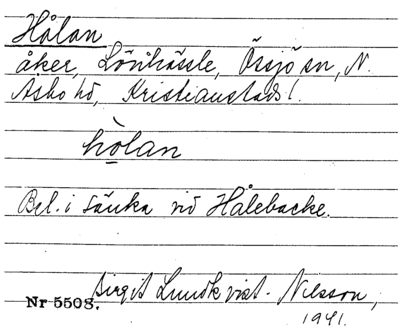 Hålan
åker, Lönhässle, Össjö sn, N.
Åsbo hd, Kristianstads l.
hòlan
Bel. i sänka vid Hålebacke.
Birgit Lundkvist-Nilsson,
Nr 5508.
1941.